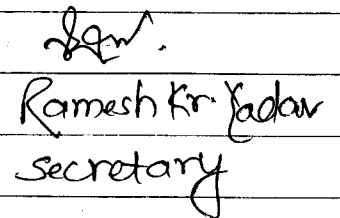 Ramesh Kr. Yadav
secretary